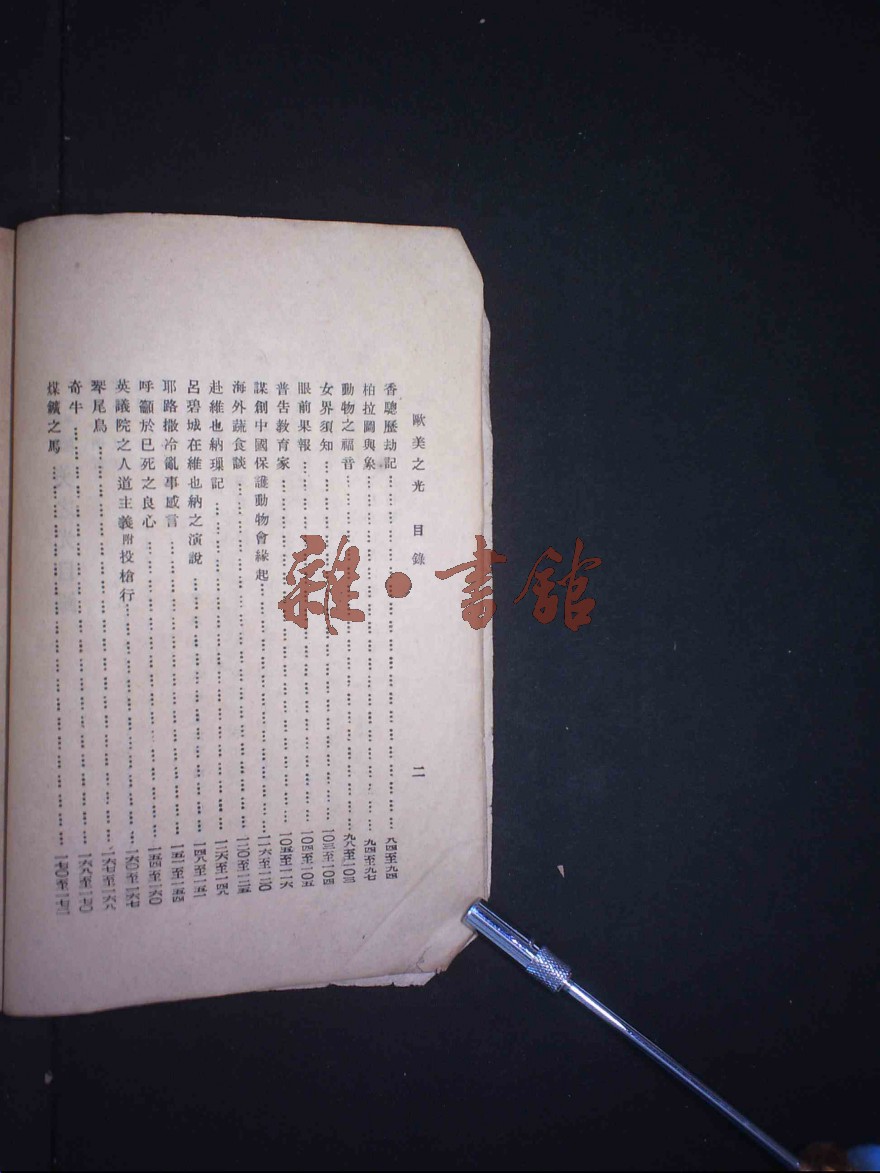 歐美之光　目錄　二
香驄歷劫記……八四至九四
柏拉圖與象……九四至九七
動物之福音……九八至一〇三
女界須知……一〇三至一〇四
眼前果報……一〇四至一〇五
普告教育家……一〇五至一一六
謀創中國保護動物會緣起……一一六至一二〇
海外蔬食談……一二〇至一二五
赴維也納璅記……一二六至一四八
呂碧城在維也納之演說……一四八至一五一
耶路撒冷亂事感言……一五一至一五四
呼籲於已死之良心……一五四至一六〇
英議院之人道主義附投槍行……一六〇至一六七
琴尾鳥……一六七至一六八
奇牛……一六八至一七〇
煤鑛之馬……一七〇至一七二
雜·書館